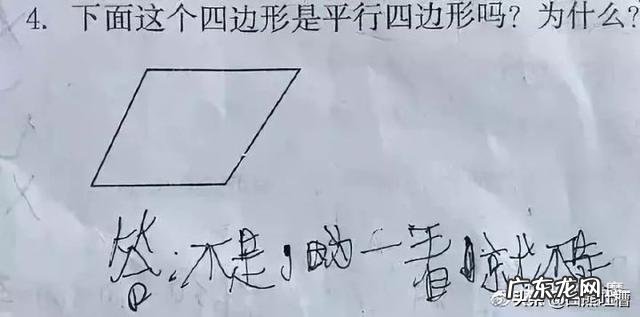 4. 下面这个四边形是平行四边形吗？为什么？
答：不是，因为一看就不是
广东龙网